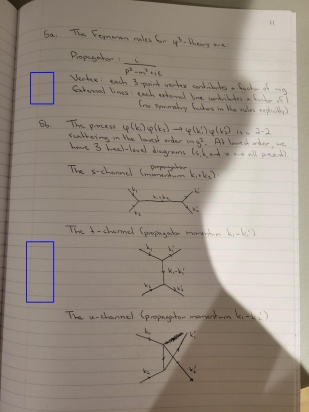 11
5a. The Feynman rules for φ³-theory are
Propagator: i
p²-m²+iε
Vertex: each 3-point vertex contributes a factor of -ig
External lines: each external line contributes a factor of 1
(no symmetry factors in the rules explicitly)
5b. The process φ(k₁)φ(k₂) → φ(k₁')φ(k₂') is a 2-2
scattering in the lowest order in g². At lowest order, we
have 3 tree-level diagrams (s, t, and u are all present).
propagator
The s-channel (momentum k₁+k₂)
k₁ k₁'
k₁+k₂
k₂ k₂'
The t-channel (propagator momentum k₁-k₁')
k₁ k₁'
k₁-k₁'
k₂ k₂'
The u-channel (propagator momentum k₁-k₂')
k₁ k₁'
k₂ k₂'